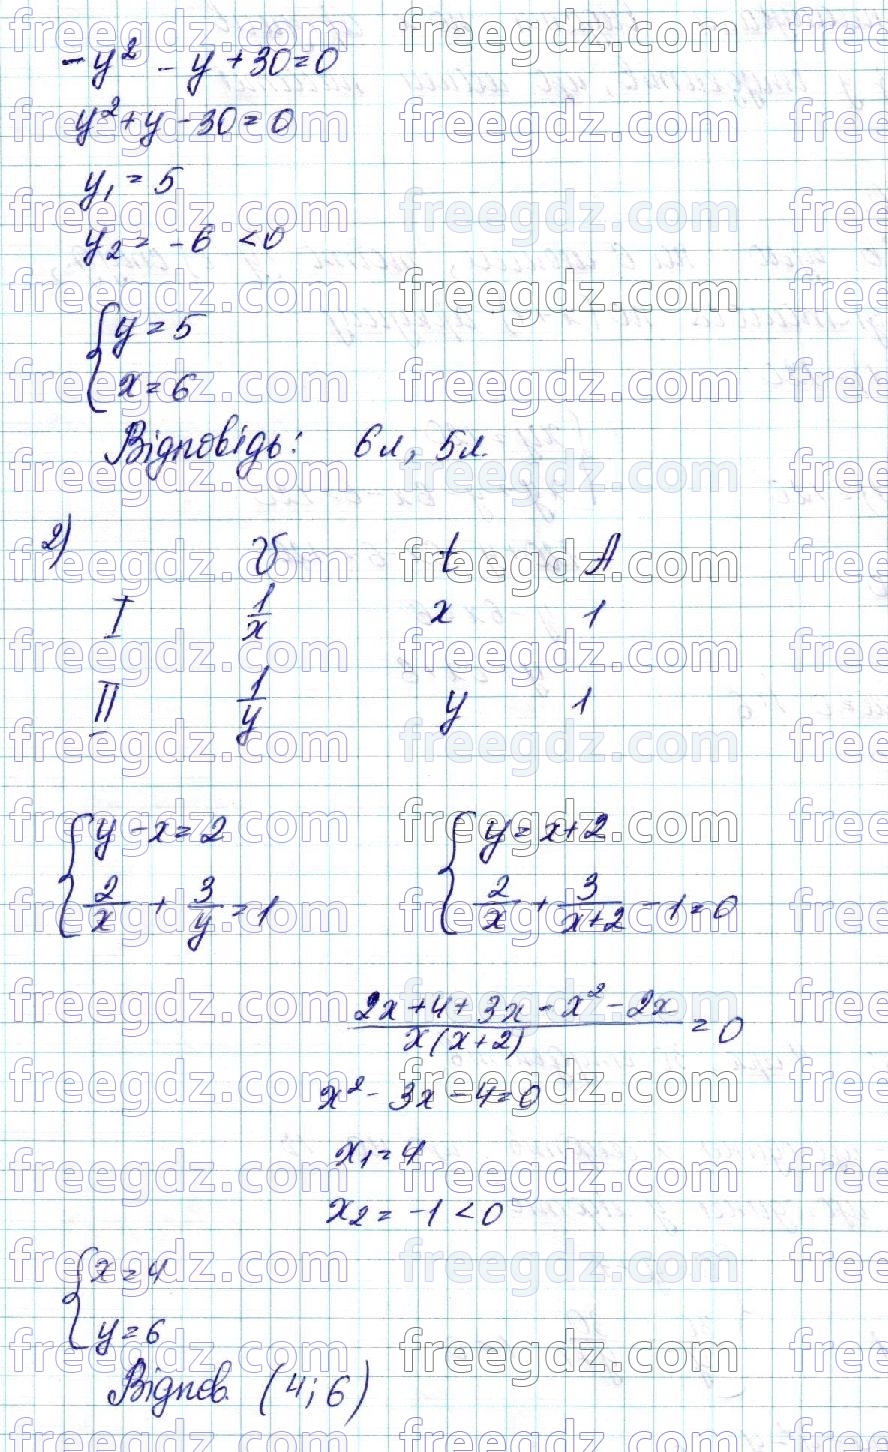 -y² - y + 30 = 0
y² + y - 30 = 0
y₁ = 5
y₂ = -6 < 0
{ y = 5
x = 6
Відповідь: 6л, 5л.
2) V t A
I 1/x x 1
II 1/y y 1
{ y - x = 2
2/x + 3/y = 1
{ y = x+2
2/x + 3/(x+2) - 1 = 0
(2x + 4 + 3x - x² - 2x)/(x(x+2)) = 0
x² - 3x - 4 = 0
x₁ = 4
x₂ = -1 < 0
{ x = 4
y = 6
Відпов. (4; 6)
freegdz.com